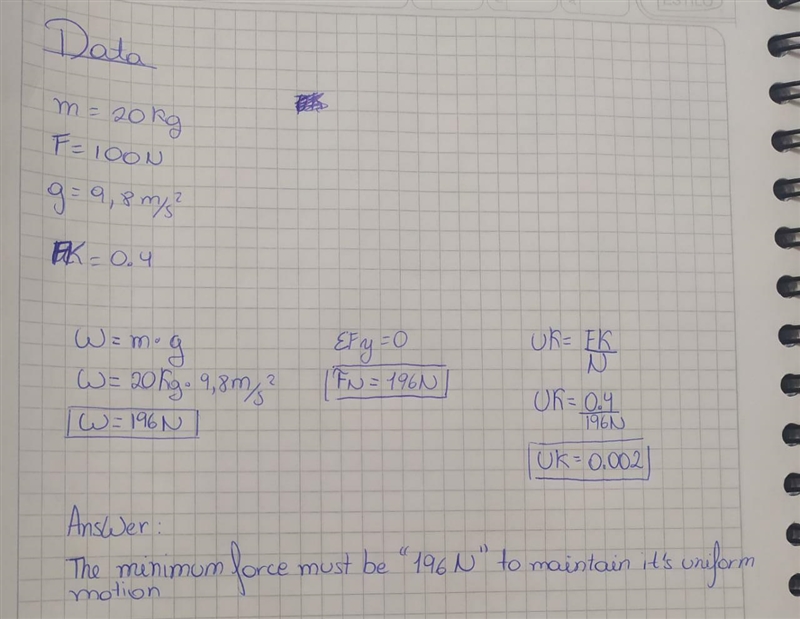 Data
m = 20Kg
F = 100N
g = 9,8 m/s²
K = 0.4
W = m · g
W = 20Kg · 9,8 m/s²
W = 196N
ΣFy = 0
FN = 196N
UK = FK/N
UK = 0.4/196N
UK = 0.002
Answer:
The minimum force must be "196N" to maintain it's uniform
motion